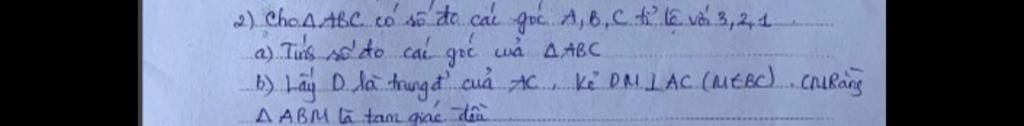 2) Cho Δ ABC có số đo các góc A, B, C tỉ lệ với 3, 2, 1
a) Tính số đo các góc của Δ ABC
b) Lấy D là trung đ' của AC, Kẻ DM ⊥ AC (M∈BC). CMRằng
Δ ABM là tam giác đều